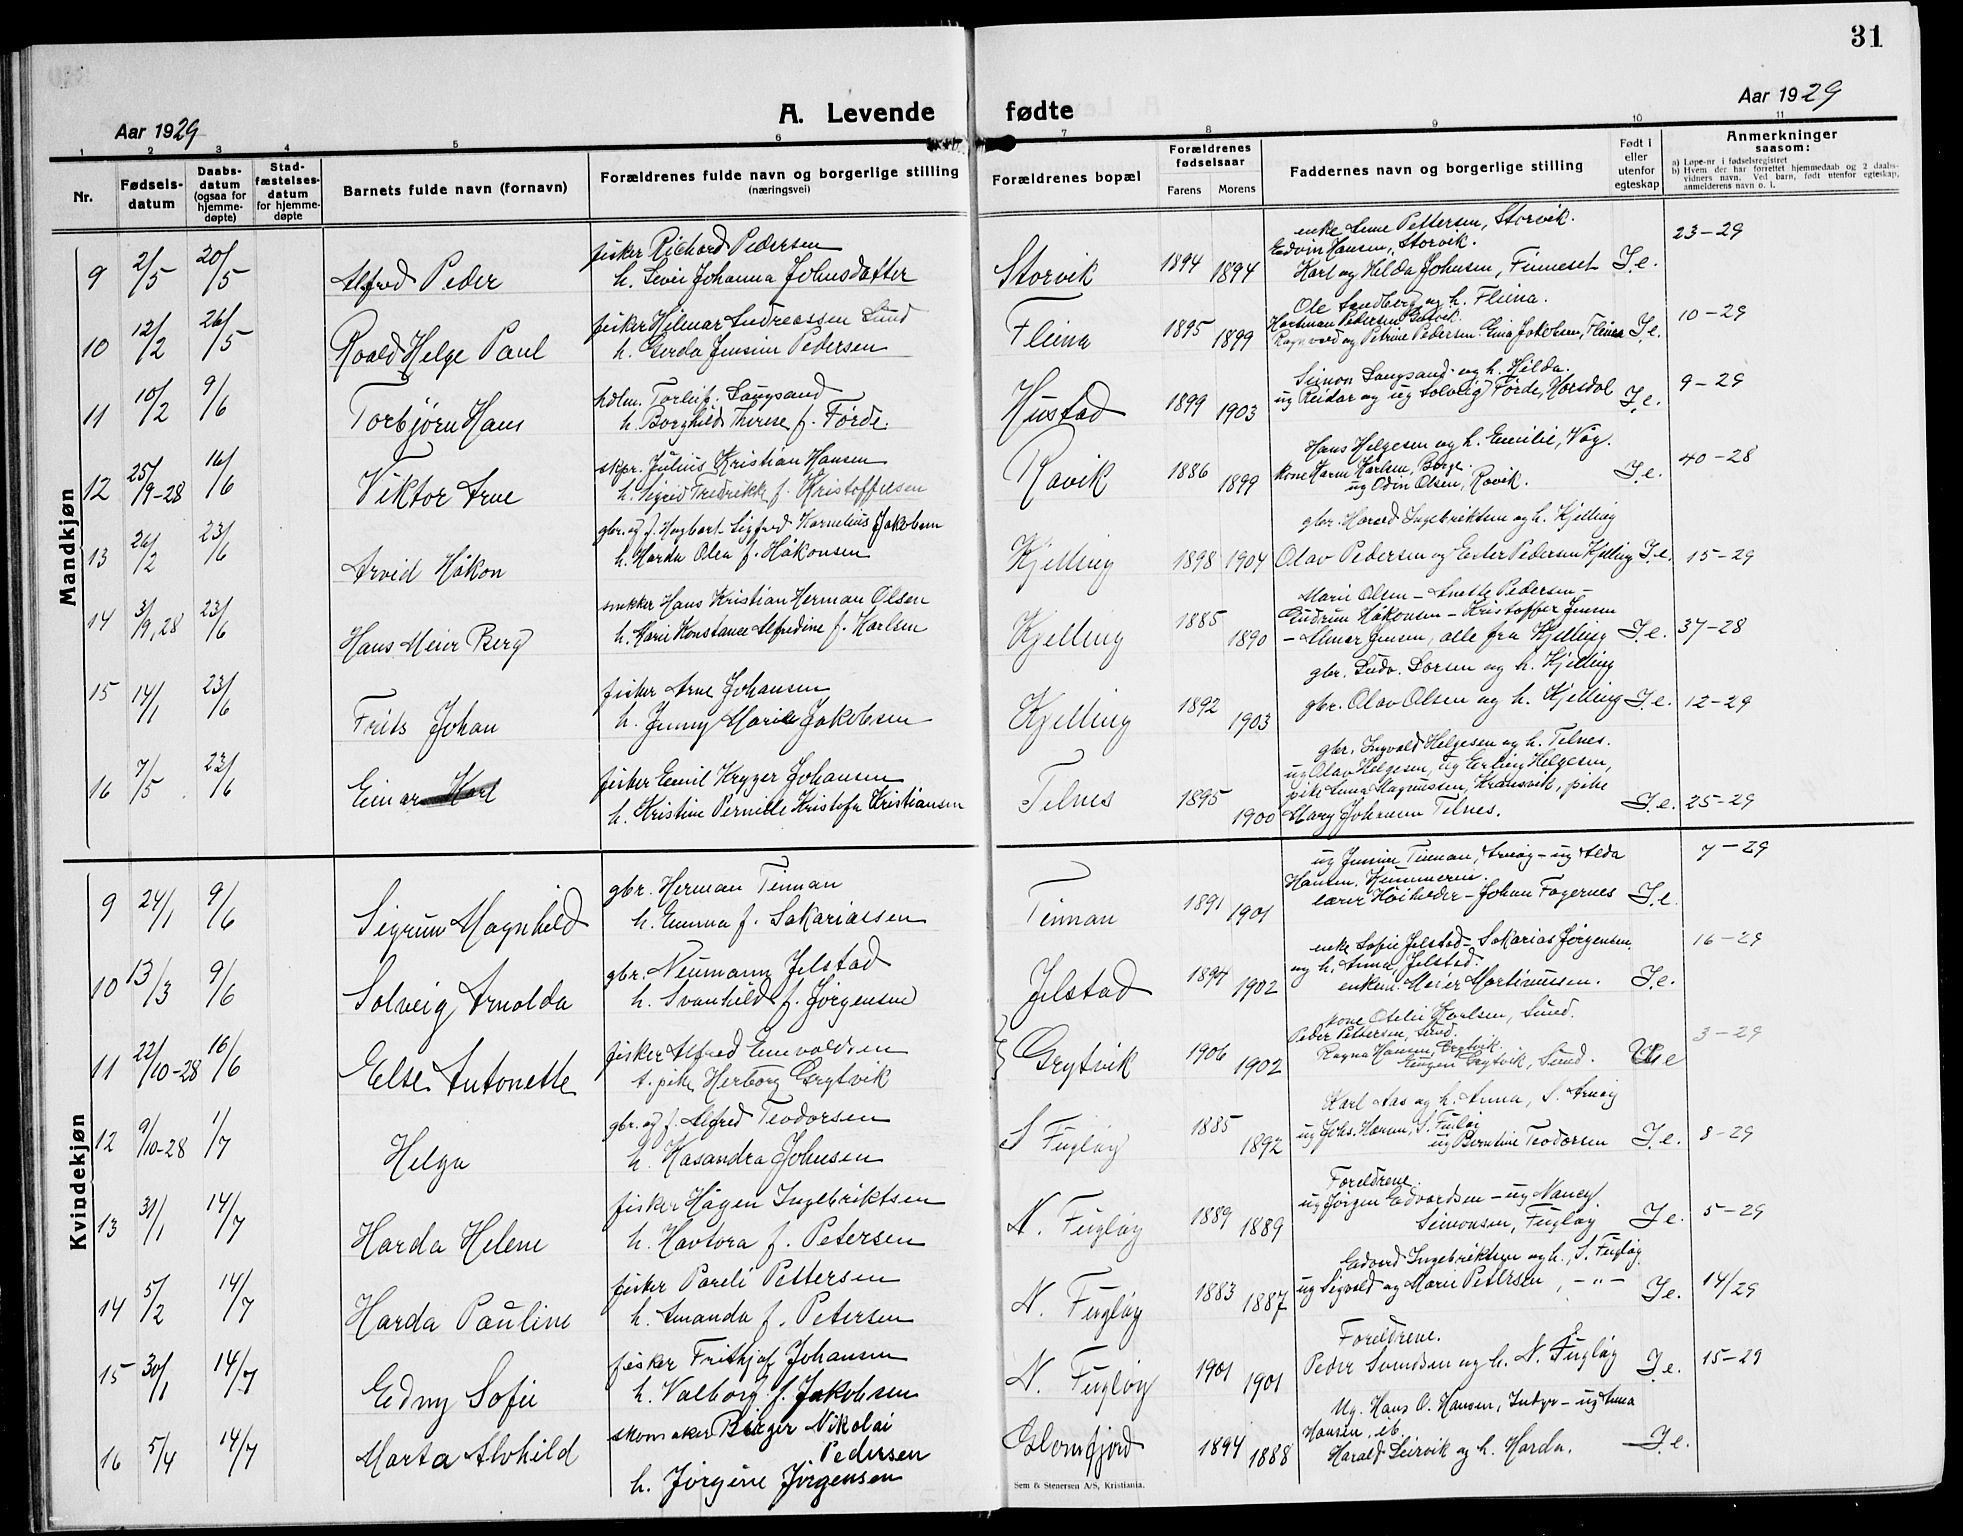 31
Aar 1929
A. Levende fødte
Aar 1929
1 2 3 4 5 6 7 8 9 10 11
Nr. | Fødsels-datum | Daabs-datum (ogsaa for hjemme-døpte) | Stad-fæstelses-datum for hjemme-døpte | Barnets fulde navn (fornavn) | Forældrenes fulde navn og borgerlige stilling (næringsvei) | Forældrenes bopæl | Forældrenes fødselsaar Farens Morens | Faddernes navn og borgerlige stilling | Født i eller utenfor egteskap | Anmerkninger saasom: a) Løpe-nr i fødselsregistret b) Hvem der har forrettet hjemmedaab og 2 daabs-vidners navn. Ved barn, født utenfor egteskap, anmelderens navn o. l.
Mandkjøn
enke Pettersen, Storvik.
9 2/5 20/5 Alfred Peder fisker Richard Pedersen Storvik 1894 1894 Edvin Hansen, Storvik. I.e. 23-29
h. Johanna Johnsdatter Karl og Hilda Johnsen, Finneset
Ole Sandberg og h. Fleina.
10 12/2 26/5 Roald Helge Paul fisker Hilmar Andreassen Lund Fleina 1895 1899 Hartman Pedersen I.e. 10-29
h. Gerda Jensine Pedersen Ragnvard og Petrine Pedersen. Jakobsen, Fleina
Simon Langsand og h. Hilda.
11 10/2 9/6 Torbjørn Hans Torleif Langsand Hustad 1899 1903 ug Reidar og ug Solveig Førde, Horsdal I.e. 9-29
h. Borghild Therese f. Førde.
Hans Helgesen og h. Emilie, Våg.
12 25/9-28 16/6 Viktor Arne skpr. Julius Kristian Hansen Ravik 1886 1899 kone Karlsen, I.e. 40-28
h. Sigrid Fredrikke f. Kristoffersen ug Odin Olsen, Ravik.
gbr. Ingebriktsen og h. Kjelling
13 26/2 23/6 Arvid Håkon gbr. og f. Hagbart Sigfred Kornelius Jakobsen Kjelling 1898 1904 Olav Pedersen og Ester Pedersen Kjelling I.e. 15-29
h. Harda Olea f. Håkonsen
Marie Olsen - Anette Pedersen -
14 3/9, 28 23/6 Hans Meier Berg snekker Hans Kristian Herman Olsen Kjelling 1885 1890 Gudrun Håkonsen - Kristoffer Jensen I.e. 37-28
h. Marie Konstance Alfredine f. Karlsen - Jensen, alle fra Kjelling
gbr. Ludv. Larsen og h. Kjelling
15 14/1 23/6 Frits Johan fisker Arne Johansen Kjelling 1892 1903 gbr. Olav Olsen og h. Kjelling I.e. 12-29
h. Jenny Marie Jakobsen
gbr. Ingvald Helgesen og h. Telnes.
16 7/5 23/6 Einar Karl fisker Emil Kryger Johansen Telnes 1895 1900 ug Olav Helgesen, ug Erling Helgesen, I.e. 25-29
h. Kristine Pernille Kristofa Kristiansen pike Anna Magnussen, pike
Mary Johansen Telnes.
Kvindekjøn
ug Jensine Tennan, Arnøy - ug Alda
9 24/1 9/6 Sigrun Magnhild gbr. Herman Tennan Tennan 1891 1901 Hansen, I.e. 7-29
h. Emma f. Sakariassen lærer - Johan Fagernes
enke Sofie Jelstad - Sakarias Jørgensen
10 13/3 9/6 Solveig Arnolda gbr. Neumann Jelstad Jelstad 1894 1902 og h. Anna, Jelstad. I.e. 16-29
h. Svanhild f. Jørgensen enkem. Meier Martinussen.
kone Otelie Karlsen, Sund.
11 22/10-28 16/6 Else Antonette fisker Alfred Enevoldsen Grytvik 1906 1902 Peder Pettersen, Sund. 3-29
t. pike Herborg Grytvik Ragna Hansen, Grytvik. Eugen Grytvik, Sund.
Karl Aas og h. Anna, S. Arnøy
12 9/10-28 1/7 Helga gbr. og f. Alfred Teodorsen S Fugløy 1885 1892 ug Johs. Hansen, S. Fugløy I.e. 8-29
h. Kasandra Johnsen ug Berntine Teodorsen
Foreldrene.
13 31/1 14/7 Harda Helene fisker Hågen Ingebriktsen N. Fugløy 1889 1889 ug Jørgen Edvardsen - ug Nancy I.e. 5-29
h. Havtora f. Petersen Simonsen, Fugløy
Edvard Ingebriktsen og h., S. Fugløy
14 5/2 14/7 Harda Pauline fisker Pareli Pettersen N. Fugløy 1883 1887 ug Sigvald og Marie Petersen, -"- I.e. 14/29
h. Amanda f. Petersen
Foreldrene.
15 30/1 14/7 Edny Sofie fisker Frithjof Johansen N. Fugløy 1901 1901 Peder Svendsen og h. N. Fugløy I.e. 15-29
h. Valborg f. Jakobsen
Ug. Hans O. Hansen, Indyr - ug Anna
16 5/4 14/7 Marta Alvhild skomaker Birger Nikolai Pedersen Glomfjord 1894 1888 Hansen, ib. I.e.
h. Jørgine Jørgensen Harald Leirvik og h. Harda.
Sem & Stenersen A/S, Kristiania.